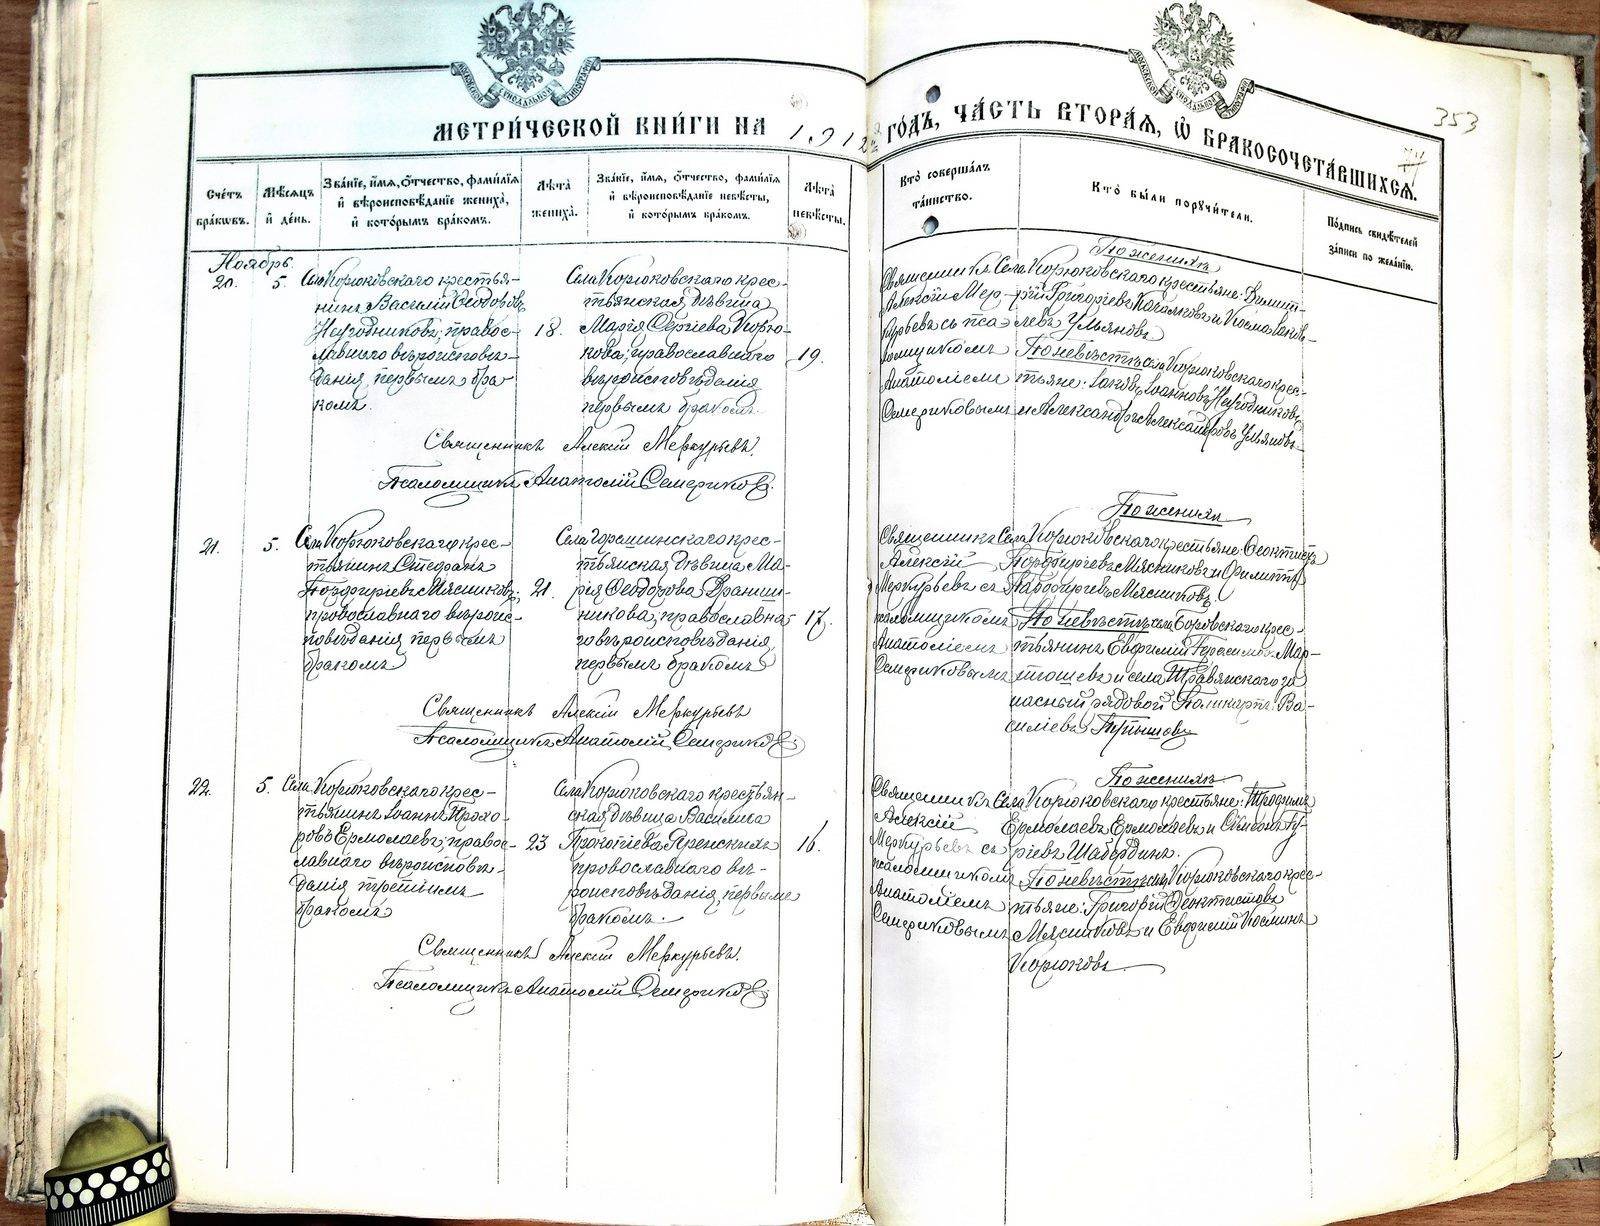 МЕТРИ́ЧЕСКОЙ КНИ́ГИ НА 1912 ГО́ДЪ, ЧА́СТЬ ВТОРА́Я, Ѿ БРАКОСОЧЕТА́ВШИХСѦ.
353
Сче́тъ бра́кωвъ.
Мѣ́сѧцъ и҆ де́нь.
Зва́нїе, и҆́мѧ, ѻ҆́тчество, фамилїѧ и҆ вѣроисповѣ́данїе жениха̀, и҆ кото́рымъ бра́комъ.
Лѣ́та жениха̀.
Зва́нїе, и҆́мѧ, ѻ҆́тчество, фамилїѧ и҆ вѣроисповѣ́данїе невѣ́сты, и҆ кото́рымъ бра́комъ.
Лѣ́та невѣ́сты.
Кто̀ соверша́лъ та́инство.
Кто̀ бы́ли порꙋчи́тели.
По́дпись свидѣ́телей за́писи по жела́нїю.
Ноябрь
20.
5.
Села Корюковскаго крестья-
нинъ Василій Ѳеодоровъ
Негодниковъ; правос-
лавнаго вѣроисповѣ-
данія, первымъ бра-
комъ.
18.
Села Корюковскаго крес-
тьянская дѣвица
Марія Сергіева Корю-
кова; православнаго
вѣроисповѣданія
первымъ бракомъ.
19.
Священникъ
Алексій Мер-
курьевъ съ псал-
омщикомъ
Анатоліемъ
Семериковымъ
По женихѣ
Села Корюковскаго крестьяне: Димит-
рій Григоріевъ и Косма Іаков-
левъ Ульяновъ
По невѣстѣ: села Корюковскаго крес-
тьяне: Іаковъ Іоанновъ Негодниковъ
и Александръ Александровъ Ульяновъ.
Священникъ Алексій Меркурьевъ.
Псаломщикъ Анатолій Семериковъ.
21.
5.
Села Корюковскаго крес-
тьянинъ Стефанъ
Порфиріевъ Мясниковъ;
православнаго вѣроис-
повѣданія, первымъ
бракомъ
21.
Села крес-
тьянская дѣвица Ма-
рія Ѳеодорова
православна-
го вѣроисповѣданія,
первымъ бракомъ
17.
Священникъ
Алексій
Меркурьевъ съ
псаломщикомъ
Анатоліемъ
Семериковымъ
По женихѣ
Села Корюковскаго крестьяне: Ѳеоктистъ
Порфиріевъ Мясниковъ и Филиппъ
Порфиріевъ Мясниковъ
По невѣстѣ: села Боровскаго крес-
тьянинъ Евфимій Герасимовъ Мар-
тюшевъ и села Травянскаго за-
пасный рядовой Поликарпъ Ва-
силіевъ
Священникъ Алексій Меркурьевъ
Псаломщикъ Анатолій Семериковъ
22.
5.
Села Корюковскаго крес-
тьянинъ Іоаннъ Прохо-
ровъ Ермолаевъ; правос-
лавнаго вѣроисповѣ-
данія третьимъ
бракомъ
23
Села Корюковскаго крестьян-
ская дѣвица Василиса
Прокопіева Яренскихъ
православнаго вѣ-
роисповѣданія, первымъ
бракомъ.
16.
Священникъ
Алексій
Меркурьевъ съ
псаломщикомъ
Анатоліемъ
Семериковымъ
По женихѣ
Села Корюковскаго крестьяне: Трофимъ
Ермолаевъ Ермолаевъ и Симеонъ Гу-
ріевъ Шабердинъ.
По невѣстѣ: села Корюковскаго крес-
тьяне: Григорій Ѳеоктистовъ
Мясниковъ и Евфимій Косминъ
Корюковъ
Священникъ Алексій Меркурьевъ.
Псаломщикъ Анатолій Семериковъ